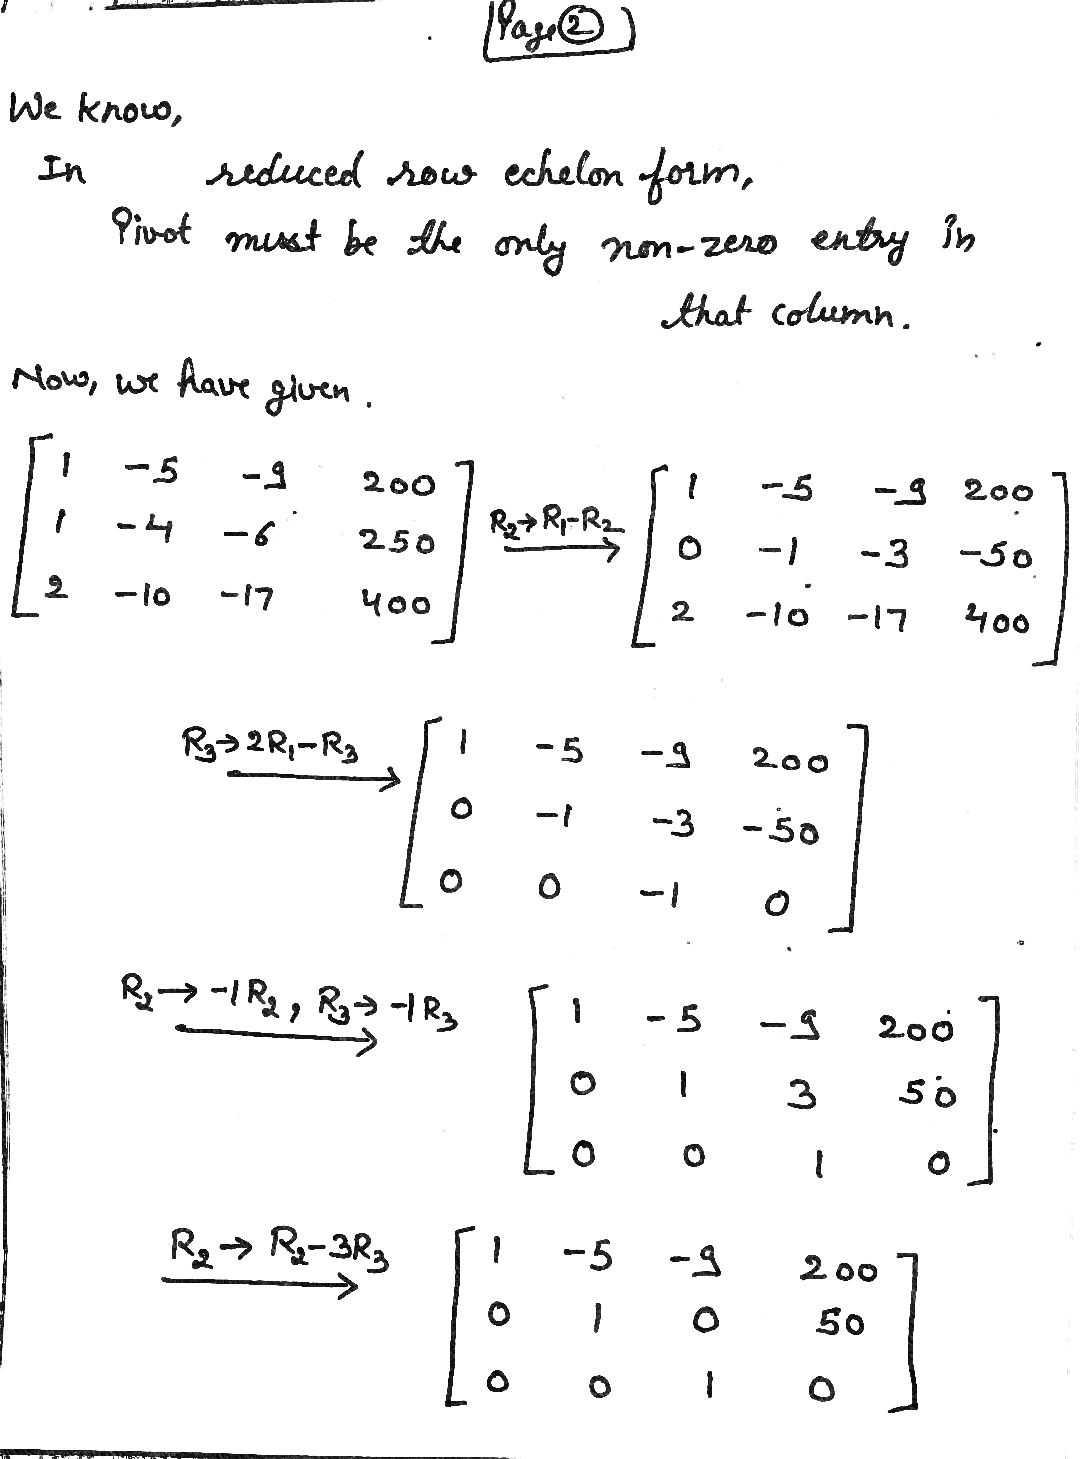 Page ②
We know,
In reduced row echelon form,
Pivot must be the only non-zero entry in
that column.
Now, we have given.
[ 1 -5 -9 200
1 -4 -6 250
2 -10 -17 400 ]
R₂→R₁-R₂
[ 1 -5 -9 200
0 -1 -3 -50
2 -10 -17 400 ]
R₃→2R₁-R₃
[ 1 -5 -9 200
0 -1 -3 -50
0 0 -1 0 ]
R₂→-1R₂, R₃→-1R₃
[ 1 -5 -9 200
0 1 3 50
0 0 1 0 ]
R₂→R₂-3R₃
[ 1 -5 -9 200
0 1 0 50
0 0 1 0 ]